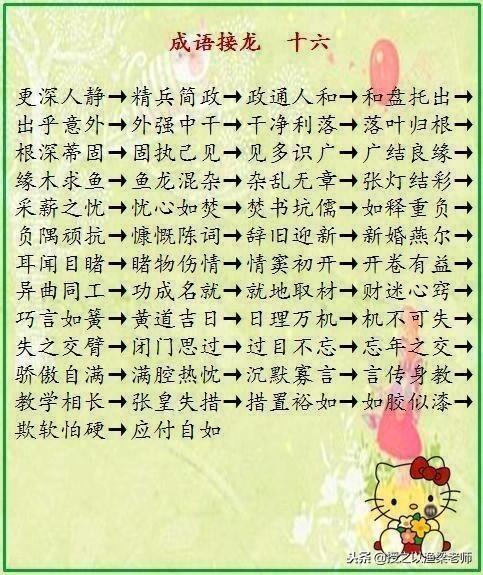 成语接龙 十六
更深人静→精兵简政→政通人和→和盘托出→
出乎意外→外强中干→干净利落→落叶归根→
根深蒂固→固执己见→见多识广→广结良缘→
缘木求鱼→鱼龙混杂→杂乱无章→张灯结彩→
采薪之忧→忧心如焚→焚书坑儒→如释重负→
负隅顽抗→慷慨陈词→辞旧迎新→新婚燕尔→
耳闻目睹→睹物伤情→情窦初开→开卷有益→
异曲同工→功成名就→就地取材→财迷心窍→
巧言如簧→黄道吉日→日理万机→机不可失→
失之交臂→闭门思过→过目不忘→忘年之交→
骄傲自满→满腔热忱→沉默寡言→言传身教→
教学相长→张皇失措→措置裕如→如胶似漆→
欺软怕硬→应付自如
头条@授之以渔梁老师